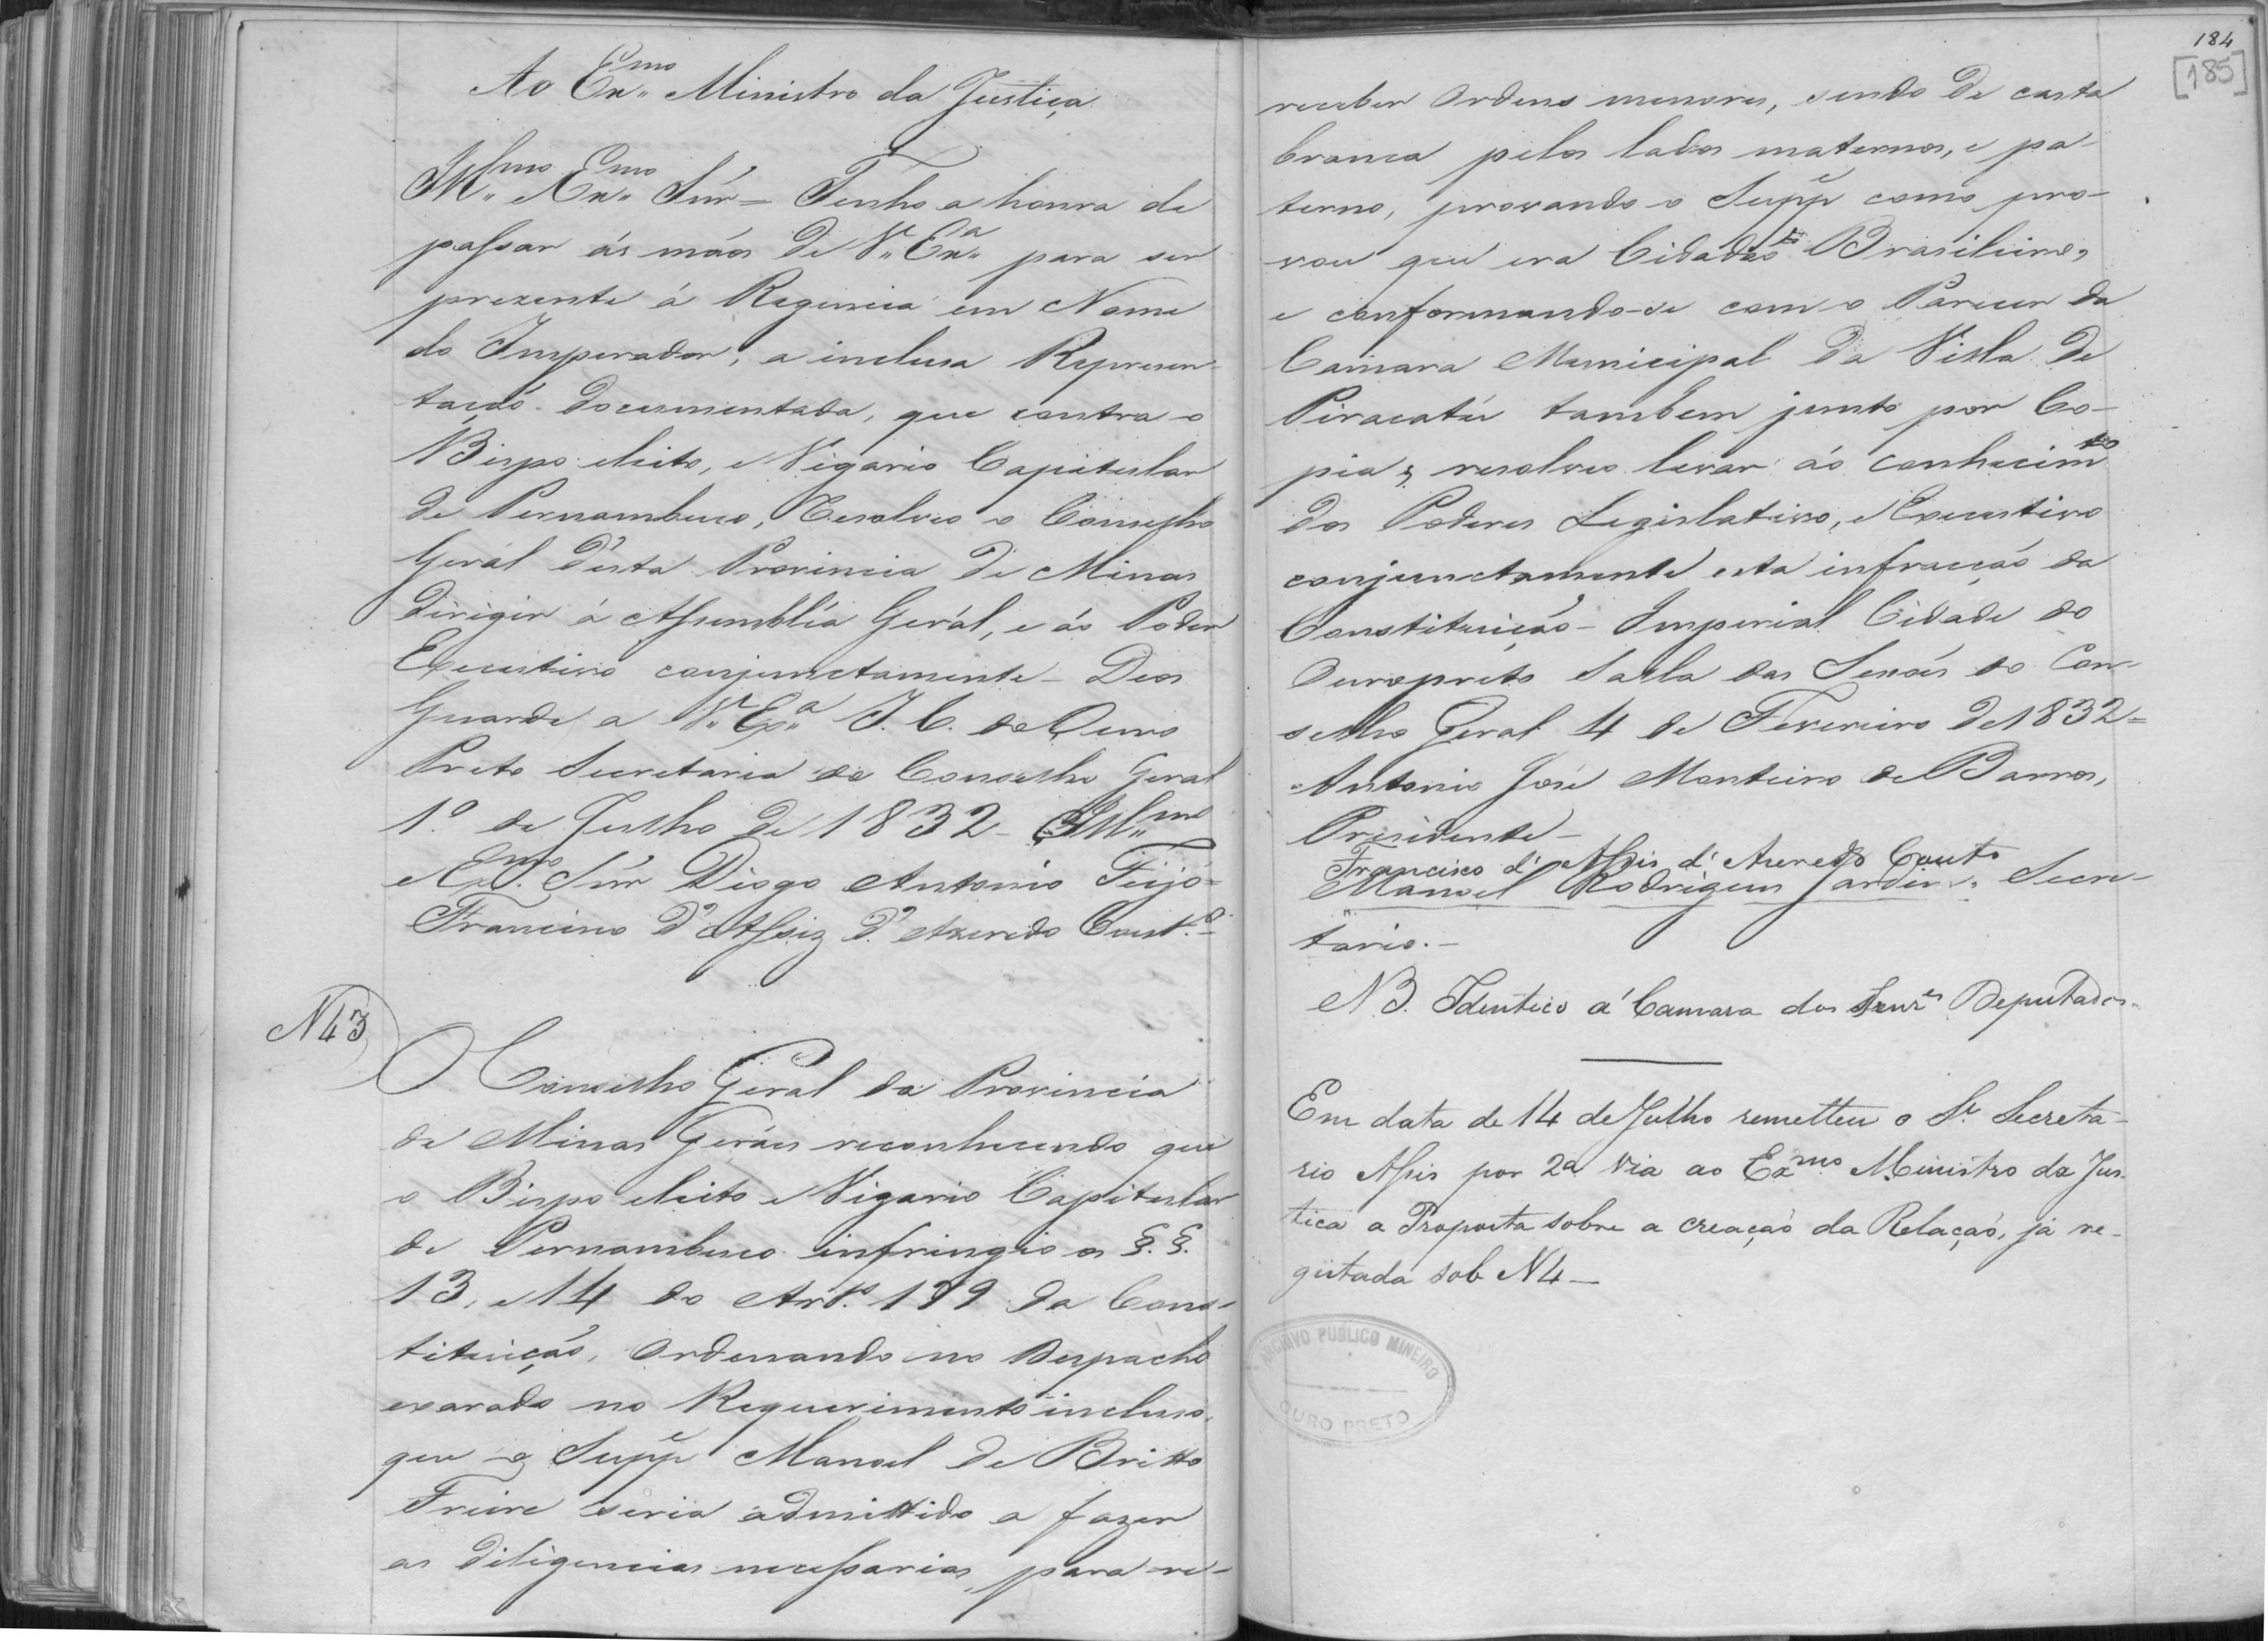 Ao Exmo Ministro da Justiça
Illmo e Exmo Snr = Tenho a honra de
passar ás mãos de Va. Exa. para ser
prezente á Regencia em Nome
do Imperador, a inclusa Represen-
tacão documentada, que contra o
Bispo eleito, e Vigario Capitular
de Pernambuco, Resolveo o Conselho
Geral d'esta Provincia de Minas
dirigir á Assembléa Gerál, e áo Poder
Executivo conjunctamente - Deos
Guarde a Va. Exa. I. C. do Ouro
Preto Secretaria do Conselho Geral
1.º de Julho de 1832 - Illmo
e Exmo. Snr Diogo Antonio Feijó =
Francisco d'Assiz d'Azeredo Coutº. -
N 43
O Conselho Geral da Provincia
de Minas Geráes reconhecendo que
o Bispo eleito e Vigario Capitular
de Pernambuco infringio os §.§.
13, e 14 do Art.º 179 da Cons-
tituição, Ordenando no Despacho
exarado no Requerimento incluso,
que o Suppe Manoel de Britto
Freire seria admittido a fazer
as diligencias necessarias para re-
184
[185]
receber Ordens menores, sendo de casta
branca pelos lados maternos, e pa-
terno, provando o Suppe como pro-
vou que era Cidadão Brasileiro,
e conformando-se com o Parecer da
Camara Municipal da Villa de
Piracatú tambem junto por Co-
pia, resolveo levar áo conhecimto
dos Poderes Legislativo, e Executivo
conjunctamente esta infracção da
Constituição - Imperial Cidade do
Ouropreto Salla das Sessões do Con-
selho Geral 4 de Fevereiro de 1832 =
Antonio José Monteiro de Barros,
Presidente -
Francisco d'Assis d'Azeredo Couto
Manoel Rodrigues Jardim, Secre-
tario. -
NB. Identico á Camara dos Senres Deputados.
Em data de 14 de Julho remetteu o Sr. Secreta-
rio Assis por 2a via ao Exmo Ministro da Jus-
tica a Proposta sobre a creação da Relação, já re-
gistada sob N4 -
ARCHIVO PUBLICO MINEIRO
OURO PRETO